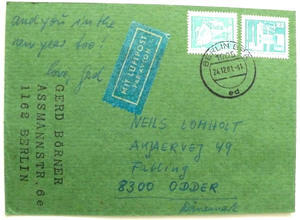 and you in the
new year too!
love, Gerd
MIT LUFTPOST
PAR AVION
BERLIN
24.12.81
GERD BÖRNER
ASSMANNSTR. 6e
1162 BERLIN
NEILS LOMHOLT
Fabling
8300 ODDER
Dänemark